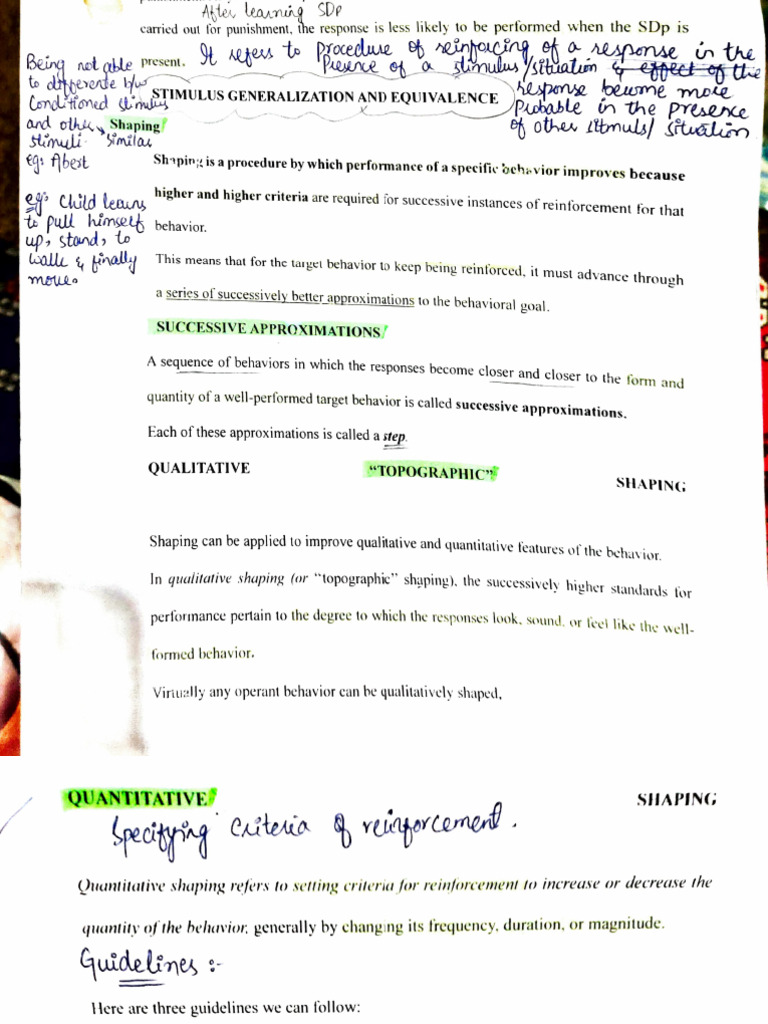 After learning SDp
carried out for punishment, the response is less likely to be performed when the SDp is
present. It refers to procedure of reinforcing of a response in the
presence of a stimulus/situation & effect of the
response become more
probable in the presence
of other stimuls/ situation
Being not able
to difference b/w
Conditioned stimulus
and other
stimuli. similar
eg: Abert
STIMULUS GENERALIZATION AND EQUIVALENCE
Shaping
Shaping is a procedure by which performance of a specific behavior improves because
higher and higher criteria are required for successive instances of reinforcement for that
behavior.
eg: Child learns
to pull himself
up, stand, to
walk & finally
move.
This means that for the target behavior to keep being reinforced, it must advance through
a series of successively better approximations to the behavioral goal.
SUCCESSIVE APPROXIMATIONS
A sequence of behaviors in which the responses become closer and closer to the form and
quantity of a well-performed target behavior is called successive approximations.
Each of these approximations is called a step.
QUALITATIVE "TOPOGRAPHIC" SHAPING
Shaping can be applied to improve qualitative and quantitative features of the behavior.
In qualitative shaping (or "topographic" shaping), the successively higher standards for
performance pertain to the degree to which the responses look, sound, or feel like the well-
formed behavior.
Virtually any operant behavior can be qualitatively shaped,
QUANTITATIVE SHAPING
Specifying criteria of reinforcement.
Quantitative shaping refers to setting criteria for reinforcement to increase or decrease the
quantity of the behavior, generally by changing its frequency, duration, or magnitude.
Guidelines :-
Here are three guidelines we can follow: